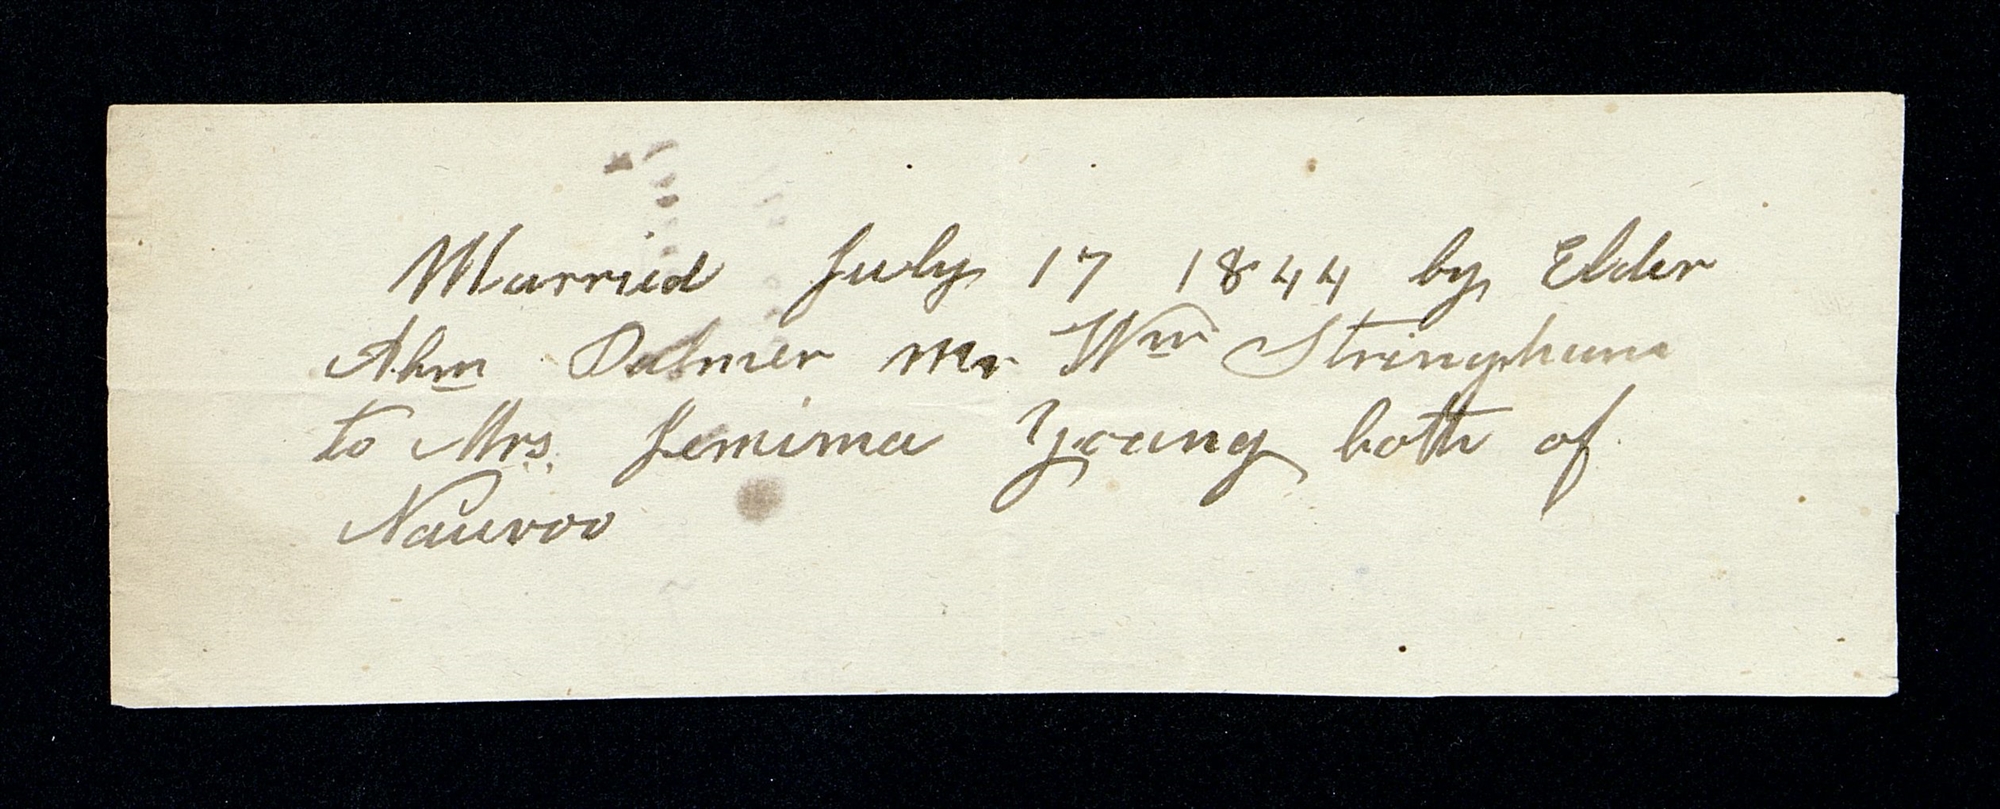 Married July 17 1844 by Elder
Ahm Palmer Mr Wm Stringham
to Mrs. Jemima Young both of
Nauvoo